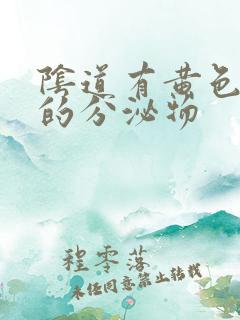 陰道有黄色
的分泌物
程零落
未经同意禁止转载